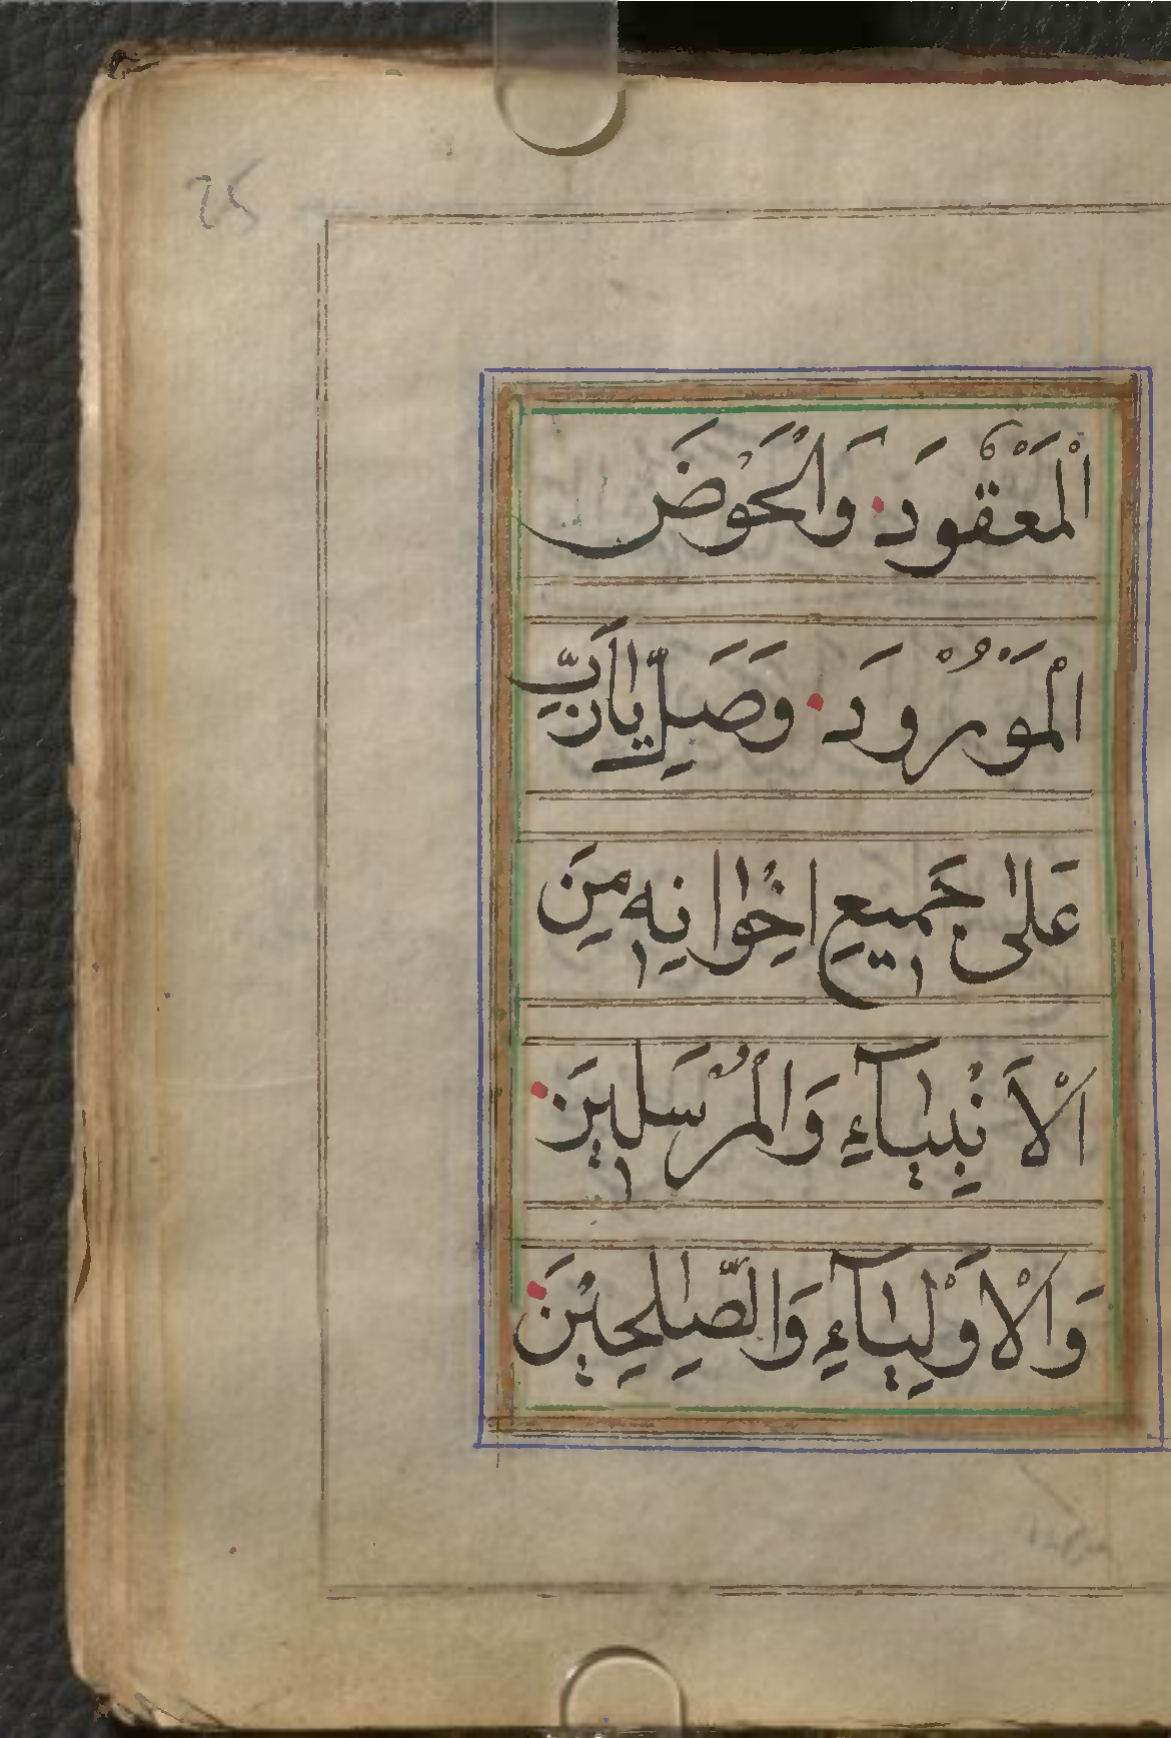 25
الْمَعْقُودَ وَالْحَوْضَ
الْمَوْرُودَ وَصَلِّ يَارَبِّ
عَلٰى جَمِيعِ اِخْوَانِهٖ مِنَ
الْاَنْبِيَآءِ وَالْمُرْسَلٖينَ
وَالْاَوْلِيَآءِ وَالصَّالِحٖينَ